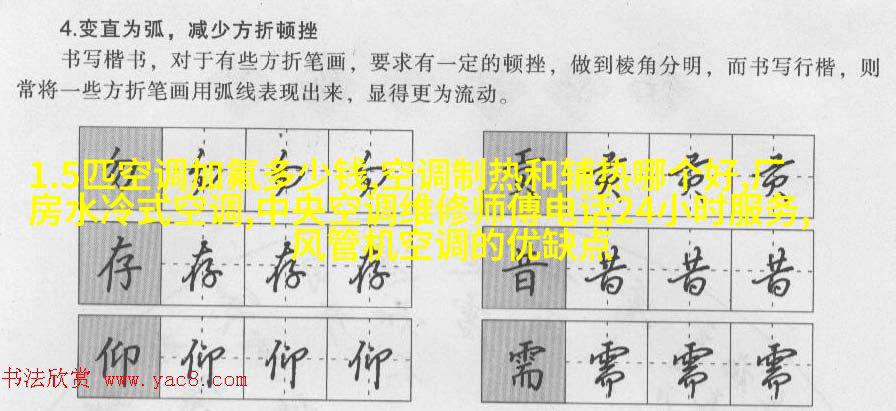 4.变直为弧，减少方折顿挫
书写楷书，对于有些方折笔画，要求有一定的顿挫，做到棱角分明，而书写行楷，则
常将一些方折笔画用弧线表现出来，显得更为流动。
1.5匹空调加氟多少钱,空调制热和辅热哪个好,厂
房水冷式空调,中央空调维修师傅电话24小时服务,
风管机空调的优缺点
存 存 存 存 昔 昔 昔 昔
仰 仰 仰 仰 需 需 需 需
书法欣赏 www.yac8.com